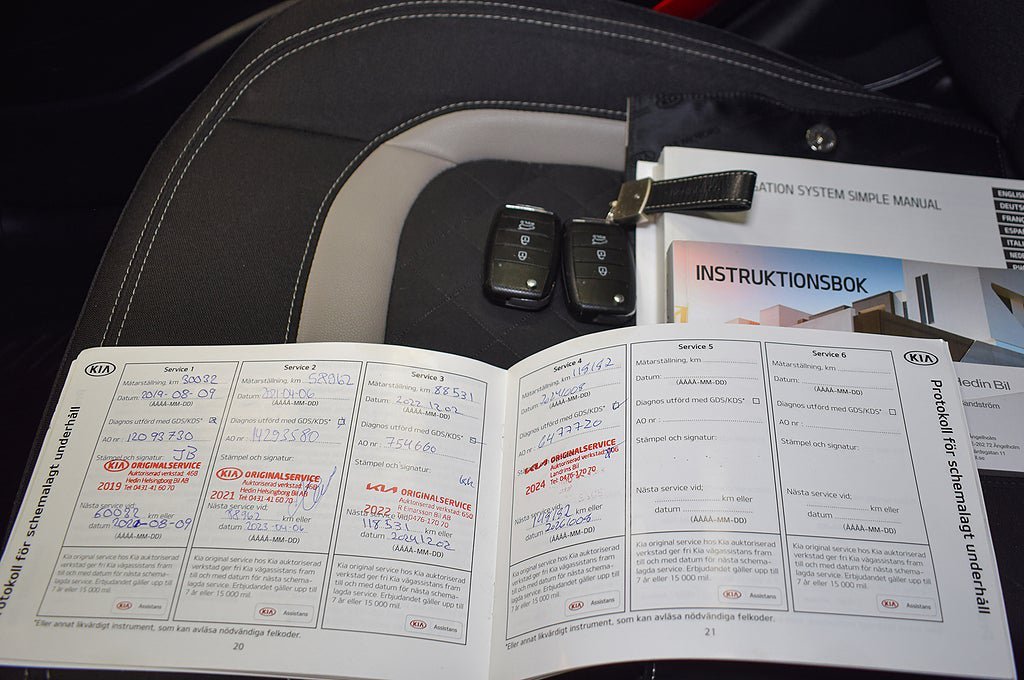 GATION SYSTEM SIMPLE MANUAL
ENGLISH
DEUTS
FRANC
ESPA
ITAL
NEDE
INSTRUKTIONSBOK
Hedin Bil
Protokoll för schemalagt underhåll
KIA
Service 1
Mätarställning, km 30032
Datum: 2019-08-09
(ÅÅÅÅ-MM-DD)
Diagnos utförd med GDS/KDS*
AO nr: 12093730
Stämpel och signatur:
JB
KIA ORIGINALSERVICE
Auktoriserad verkstad: 468
Hedin Helsingborg Bil AB
2019 Tel 0431-41 60 70
Nästa service vid:
60032 km eller
datum 2021-08-09
(ÅÅÅÅ-MM-DD)
Kia original service hos Kia auktoriserad
verkstad ger fri Kia vägassistans fram
till och med datum för nästa schema-
lagda service. Erbjudandet gäller upp till
7 år eller 15 000 mil.
KIA Assistans
Service 2
Mätarställning, km 58962
Datum: 2021-04-06
(ÅÅÅÅ-MM-DD)
Diagnos utförd med GDS/KDS*
AO nr: 14293580
Stämpel och signatur:
KIA ORIGINALSERVICE
Auktoriserad verkstad: 468
Hedin Helsingborg Bil AB
2021 Tel 0431-41 60 70
Nästa service vid:
88962 km eller
datum 2023-04-06
(ÅÅÅÅ-MM-DD)
Kia original service hos Kia auktoriserad
verkstad ger fri Kia vägassistans fram
till och med datum för nästa schema-
lagda service. Erbjudandet gäller upp till
7 år eller 15 000 mil.
KIA Assistans
Service 3
Mätarställning, km 88531
Datum: 2022-12-02
(ÅÅÅÅ-MM-DD)
Diagnos utförd med GDS/KDS*
AO nr: 754660
Stämpel och signatur:
KIA ORIGINALSERVICE
Auktoriserad verkstad: 650
R Einarsson Bil AB
2022 Tel 0476-170 70
Nästa service vid:
118531 km eller
datum 20241202
(ÅÅÅÅ-MM-DD)
Kia original service hos Kia auktoriserad
verkstad ger fri Kia vägassistans fram
till och med datum för nästa schema-
lagda service. Erbjudandet gäller upp till
7 år eller 15 000 mil.
KIA Assistans
*Eller annat likvärdigt instrument, som kan avläsa nödvändiga felkoder.
20
Service 4
Mätarställning, km 119192
Datum:
(ÅÅÅÅ-MM-DD)
Diagnos utförd med GDS/KDS*
AO nr: 6477720
KIA ORIGINALSERVICE
Auktoriserad verkstad: 650
Landrins Bil
2024 Tel 0476-170 70
Nästa service vid:
149192 km eller
datum
(ÅÅÅÅ-MM-DD)
Kia original service hos Kia auktoriserad
verkstad ger fri Kia vägassistans fram
till och med datum för nästa schema-
lagda service. Erbjudandet gäller upp till
7 år eller 15 000 mil.
KIA Assistans
Service 5
Mätarställning, km
Datum:
(ÅÅÅÅ-MM-DD)
Diagnos utförd med GDS/KDS*
AO nr:
Stämpel och signatur:
Nästa service vid:
km eller
datum
(ÅÅÅÅ-MM-DD)
Kia original service hos Kia auktoriserad
verkstad ger fri Kia vägassistans fram
till och med datum för nästa schema-
lagda service. Erbjudandet gäller upp till
7 år eller 15 000 mil.
KIA Assistans
Service 6
Mätarställning, km
Datum:
(ÅÅÅÅ-MM-DD)
Diagnos utförd med GDS/KDS*
AO nr:
Stämpel och signatur:
Nästa service vid:
km eller
datum
(ÅÅÅÅ-MM-DD)
Kia original service hos Kia auktoriserad
verkstad ger fri Kia vägassistans fram
till och med datum för nästa schema-
lagda service. Erbjudandet gäller upp till
7 år eller 15 000 mil.
KIA Assistans
KIA
Protokoll för schemalagt underhåll
*Eller annat likvärdigt instrument, som kan avläsa nödvändiga felkoder.
21